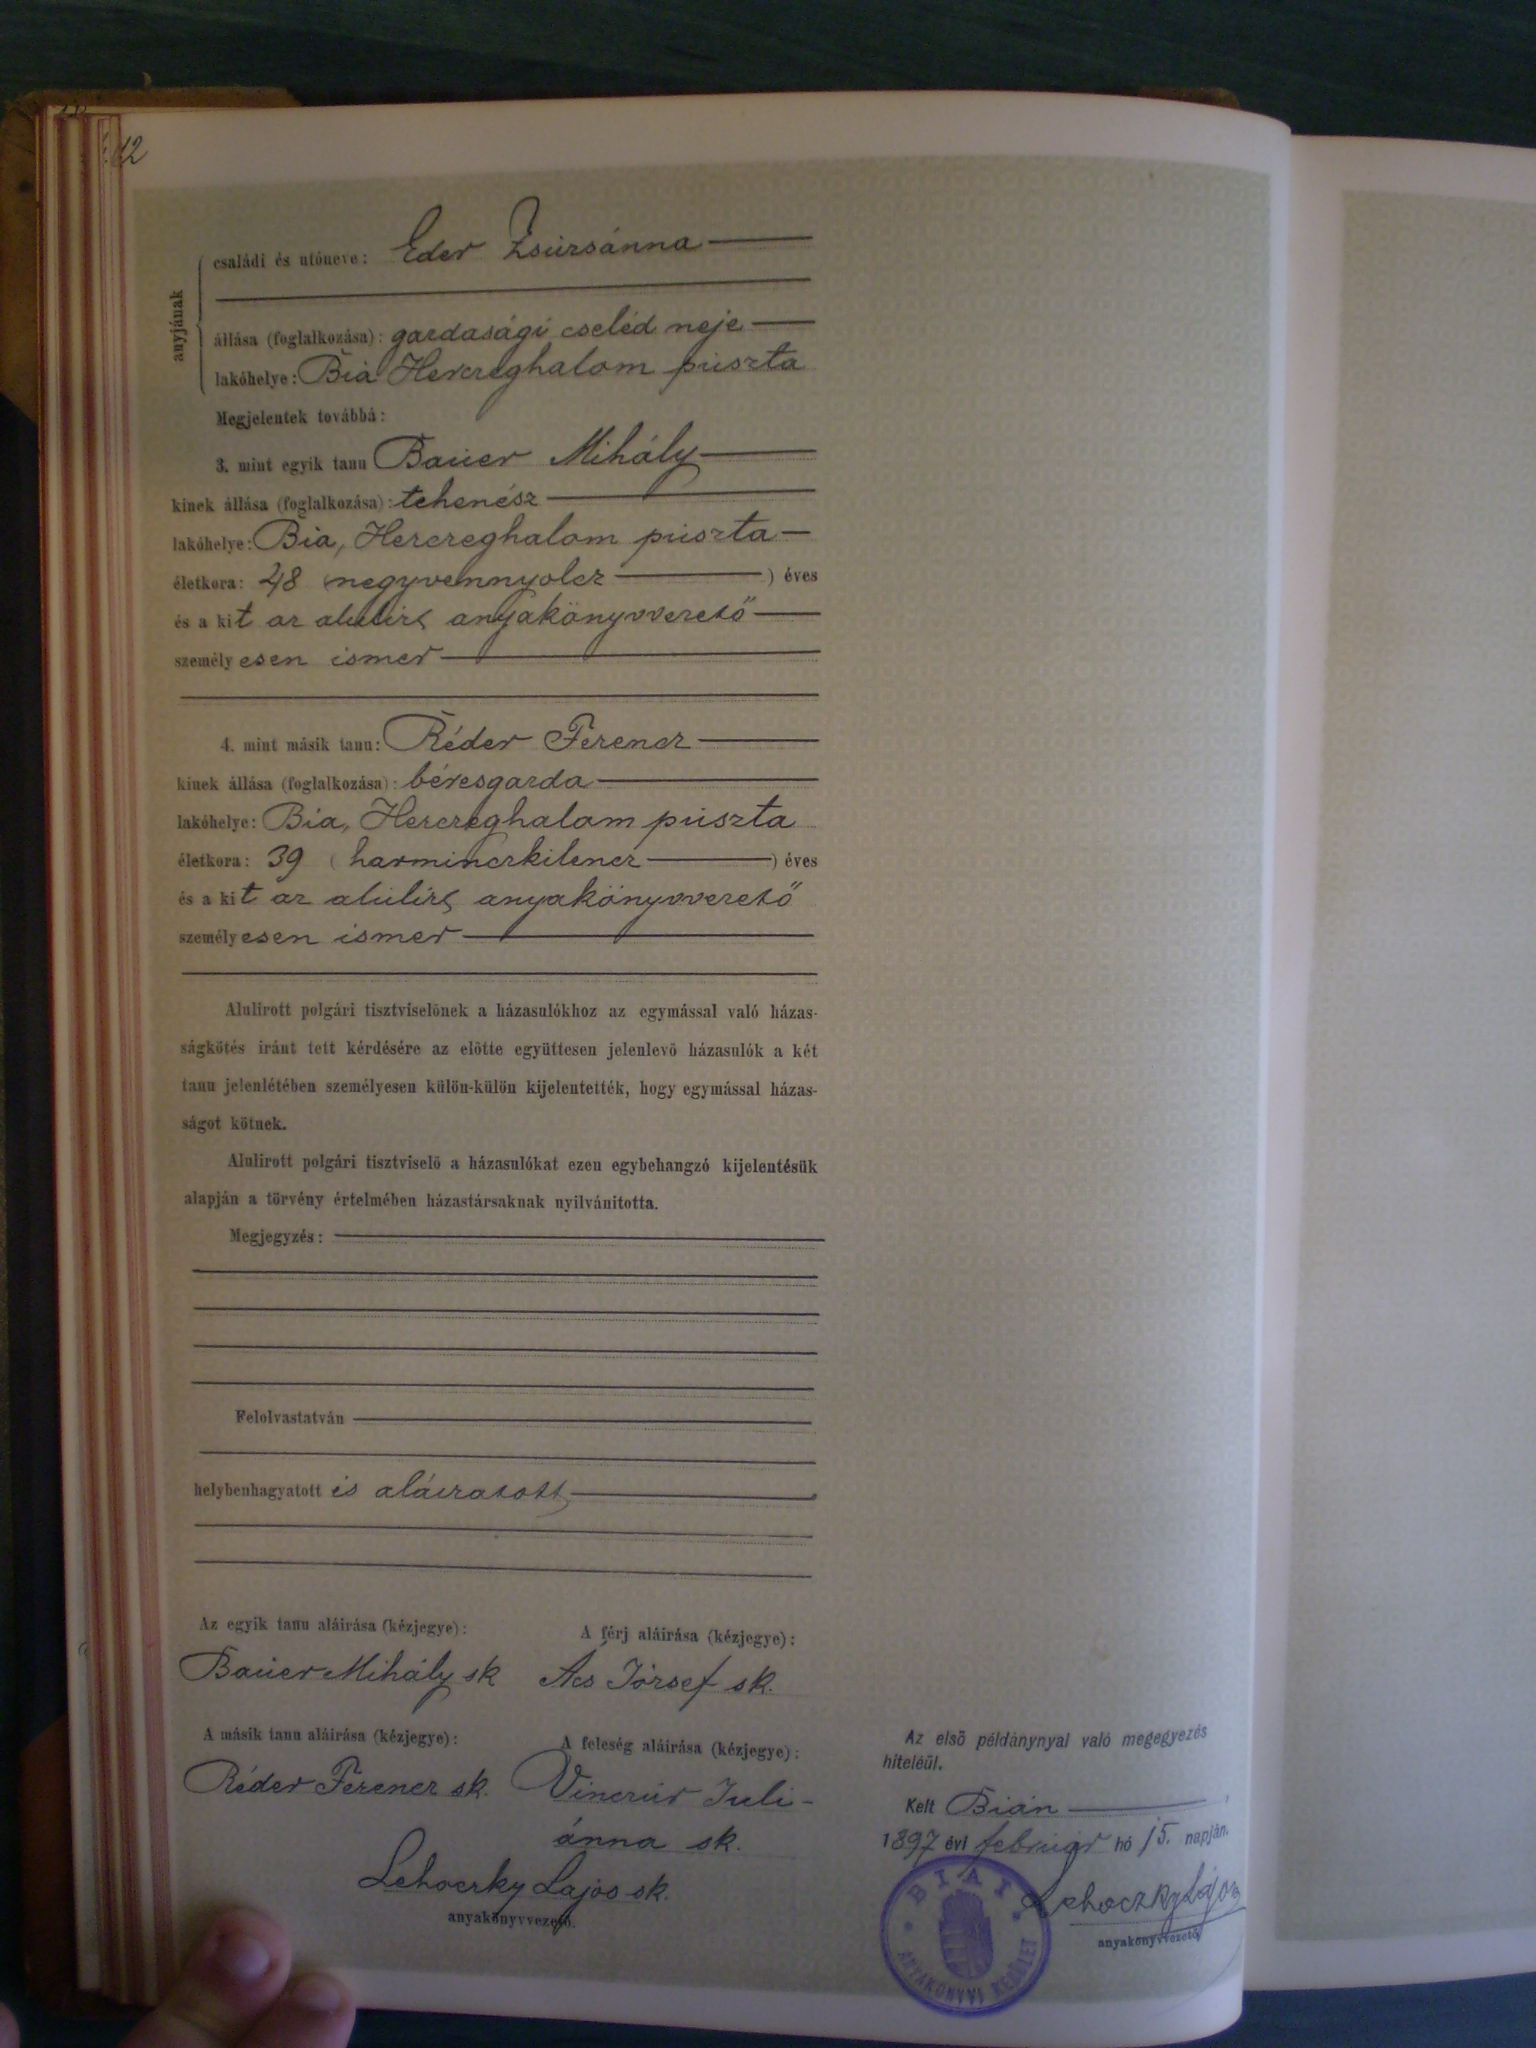 12
anyjának
családi és utóneve: Eder Zsuzsánna
állása (foglalkozása): gazdasági cseléd neje
lakóhelye: Bia Herczeghalom puszta
Megjelentek továbbá:
3. mint egyik tanu Bauer Mihály
kinek állása (foglalkozása): tehenész
lakóhelye: Bia, Herczeghalom puszta
életkora: 48 (negyvennyolcz) éves
és a kit az alulirt anyakönyvvezető
személyesen ismer
4. mint másik tanu: Réder Ferencz
kinek állása (foglalkozása): béresgazda
lakóhelye: Bia, Herczeghalom puszta
életkora: 39 (harminczkilencz) éves
és a kit az alulirt anyakönyvvezető
személyesen ismer
Alulirott polgári tisztviselőnek a házasulókhoz az egymással való házas-
ságkötés iránt tett kérdésére az előtte együttesen jelenlevő házasulók a két
tanu jelenlétében személyesen külön-külön kijelentették, hogy egymással házas-
ságot kötnek.
Alulirott polgári tisztviselő a házasulókat ezen egybehangzó kijelentésük
alapján a törvény értelmében házastársaknak nyilvánitotta.
Megjegyzés:
Felolvastatván
helybenhagyatott és aláiratott
Az egyik tanu aláirása (kézjegye): A férj aláirása (kézjegye):
Bauer Mihály sk Ács József sk.
A másik tanu aláirása (kézjegye): A feleség aláirása (kézjegye):
Réder Ferencz sk. Vinczúr Juli-
ánna sk.
Lehoczky Lajos sk.
anyakönyvvezető.
Az első példánynyal való megegyezés
hiteléül.
Kelt Bián,
1897 évi február hó 15. napján.
Lehoczky Lajos
anyakönyvvezető
BIAI
ANYAKÖNYVI KERÜLET